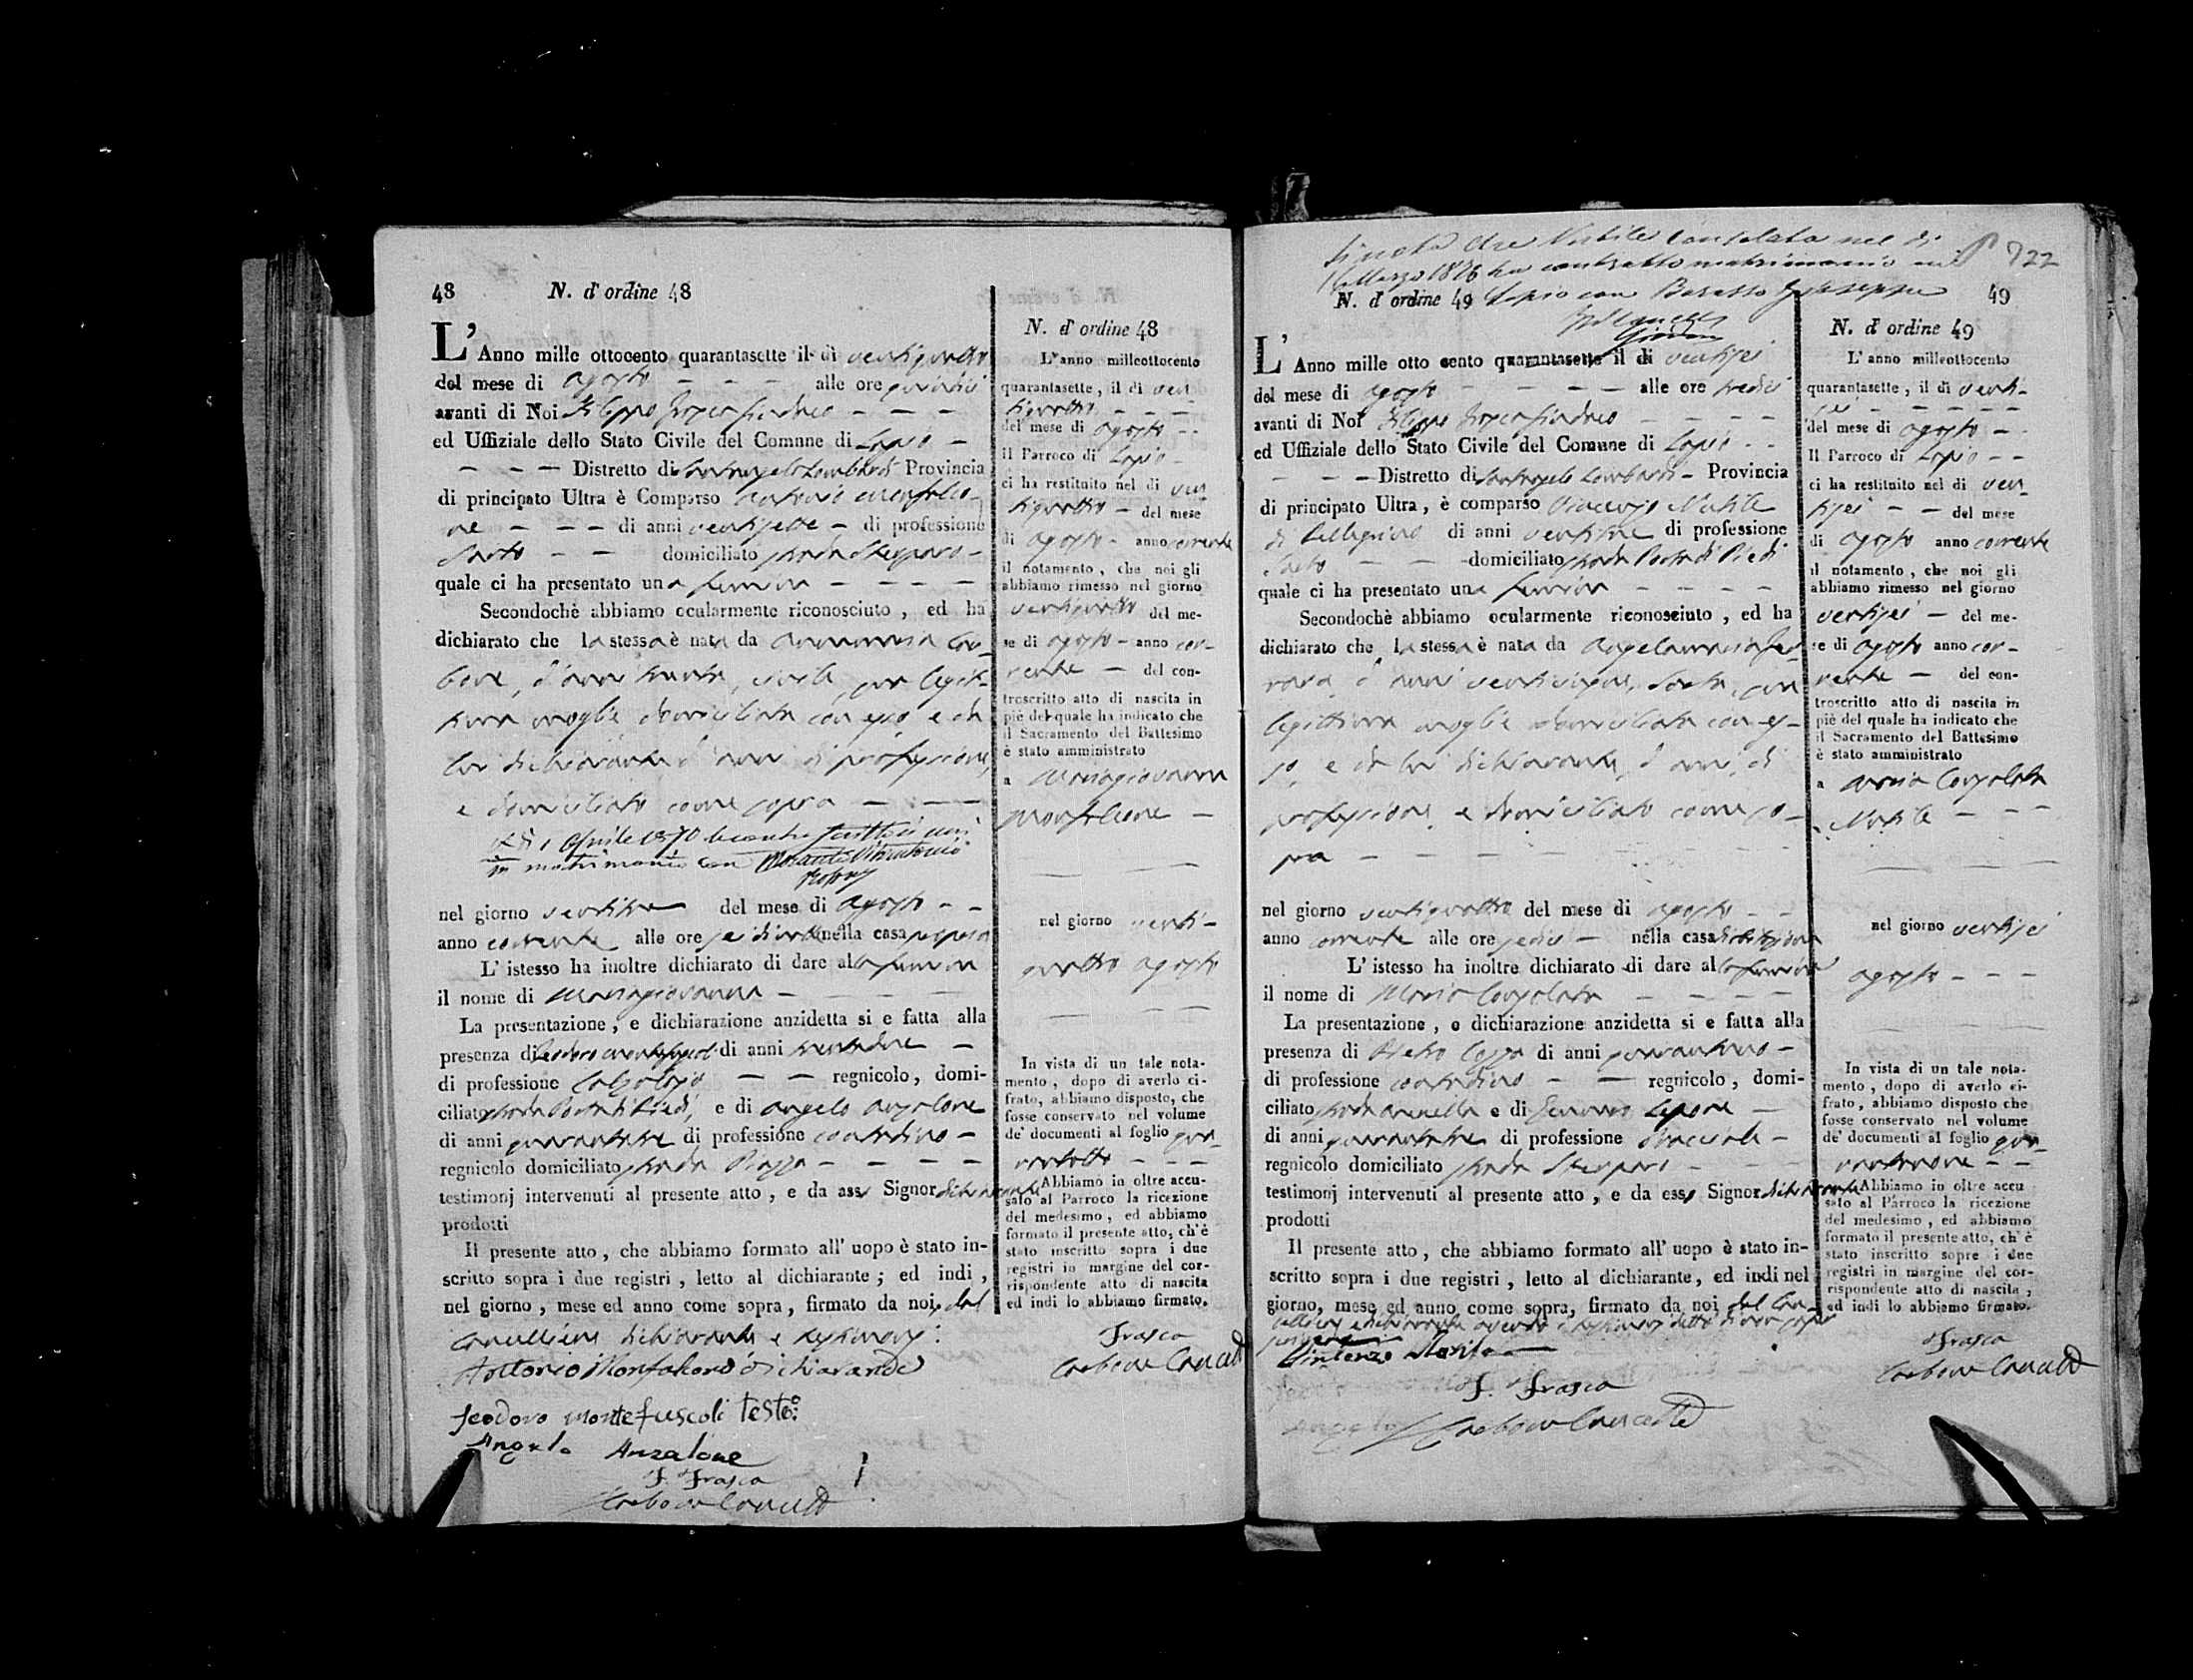 48 N. d' ordine 48
L' Anno mille ottocento quarantasette il dì ventiquattro
del mese di agosto — — — alle ore quindici
avanti di Noi Filippo Frasca Sindaco — — —
ed Uffiziale dello Stato Civile del Comune di Lapio —
— — — Distretto di Santangelo Lombardi Provincia
di principato Ultra è Comparso Antonio Monfalco-
ne — — — di anni ventisette — di professione
Sarto — — domiciliato strada
quale ci ha presentato una femina — — — —
Secondochè abbiamo ocularmente riconosciuto , ed ha
dichiarato che la stessa è nata da Annamaria Car-
bone, d'anni trenta, sua legit-
tima moglie domiciliata con esso e da
lui dichiarante d'anni di professione,
e domiciliato come sopra — — —
1 Aprile 1870
in matrimonio con
nel giorno ventitre del mese di agosto - -
anno corrente alle ore nella casa propria
L' istesso ha inoltre dichiarato di dare alla femina
il nome di Mariagiovanna — — — —
La presentazione , e dichiarazione anzidetta si e fatta alla
presenza di Teodoro Montefuscoli di anni trentadue —
di professione Calzolajo — — regnicolo, domi-
ciliato strada Porta di Piedi, e di Angelo Anzalone
di anni quarantatre di professione contadino —
regnicolo domiciliato strada Piazza — — — —
testimonj intervenuti al presente atto , e da ass Signor dichiarante
prodotti
Il presente atto , che abbiamo formato all' uopo è stato in-
scritto sopra i due registri , letto al dichiarante ; ed indi ,
nel giorno , mese ed anno come sopra , firmato da noi, dal
Cancelliere dichiarante e testimonj:
Antonio Monfalcone dichiarante
Teodoro Montefuscoli testo:
Angelo Anzalone
F. Frasca
Carbone Cancell
N. d' ordine 48
L' anno milleottocento
quarantasette , il di ven-
tiquattro — — —
del mese di agosto - -
Il Parroco di Lapio -
ci ha restituito nel di ven-
tiquattro — del mese
di agosto - anno corrente
il notamento , che noi gli
abbiamo rimesso nel giorno
ventiquattro del me-
se di agosto - anno cor-
rente — del con-
troscritto atto di nascita in
piè del quale ha indicato che
il Sacramento del Battesimo
è stato amministrato
a Mariagiovanna
Monfalcone —
nel giorno venti-
quattro agosto
In vista di un tale nota-
mento , dopo di averlo ci-
frato, abbiamo disposto, che
fosse conservato nel volume
de' documenti al foglio qua-
rantotto — — —
Abbiamo in oltre accu-
sato al Parroco la ricezione
del medesimo , ed abbiamo
formato il presente atto, ch'è
stato inscritto sopra i due
registri in margine del cor-
rispondente atto di nascita
ed indi lo abbiamo firmato.
Frasca
Carbone Cancell
Si nota che Nubile Consolata nel di
16 Marzo 1876 ha contratto matrimonio in
Lapio con Giuseppe
722
N. d' ordine 49 49
L' Anno mille otto cento quarantasette il di ventisei
del mese di agosto — — — — alle ore tredici
avanti di Noi Filippo Frasca Sindaco — — — —
ed Uffiziale dello Stato Civile del Comune di Lapio - -
— — — Distretto di Santangelo Lombardi — Provincia
di principato Ultra , è comparso Vincenzo Nubile
di Pellegrino di anni di professione
Sarto — — domiciliato strada Porta di Piedi
quale ci ha presentato una femina — — — —
Secondochè abbiamo ocularmente riconosciuto , ed ha
dichiarato che la stessa è nata da Angelamaria
d'anni sua
legittima moglie domiciliata con es-
so, e da lui dichiarante, d'anni, di
professione e domiciliato come so-
pra — — — — — —
nel giorno ventiquattro del mese di agosto - -
anno corrente alle ore sedici — nella casa di abitazione
L' istesso ha inoltre dichiarato di dare alla femina
il nome di Maria Consolata — — — —
La presentazione , e dichiarazione anzidetta si e fatta alla
presenza di Pietro di anni —
di professione contadino — — regnicolo , domi-
ciliato strada e di Lepore —
di anni quarantatre di professione bracciale —
regnicolo domiciliato strada — — —
testimonj intervenuti al presente atto , e da ess Signor dichiarante
prodotti
Il presente atto , che abbiamo formato all' uopo è stato in-
scritto sopra i due registri , letto al dichiarante, ed indi nel
giorno, mese ed anno come sopra, firmato da noi dal Can-
celliere e dichiarante avendo i testimonj detto di non saper
Vincenzo Nubile
F. Frasca
Carbone Cancell
N. d' ordine 49
L' anno milleottocento
quarantasette , il di venti-
sei — — — — —
del mese di agosto — -
Il Parroco di Lapio — —
ci ha restituito nel di ven-
tisei — — del mese
di agosto anno corrente
il notamento , che noi gli
abbiamo rimesso nel giorno
ventisei — del me-
se di agosto anno cor-
rente — del con-
troscritto atto di nascita in
piè del quale ha indicato che
il Sacramento del Battesimo
è stato amministrato
a Maria Consolata
Nubile — — —
nel giorno ventisei
agosto — — —
In vista di un tale nota-
mento , dopo di averlo ci-
frato , abbiamo disposto che
fosse conservato nel volume
de' documenti al foglio qua-
rantanove — —
Abbiamo in oltre accu
sato al Parroco la ricezione
del medesimo , ed abbiamo
formato il presente atto, ch'è
stato inscritto sopre i due
registri in margine del cor-
rispondente atto di nascita ,
ed indi lo abbiamo firmato.
Frasca
Carbone Cancell